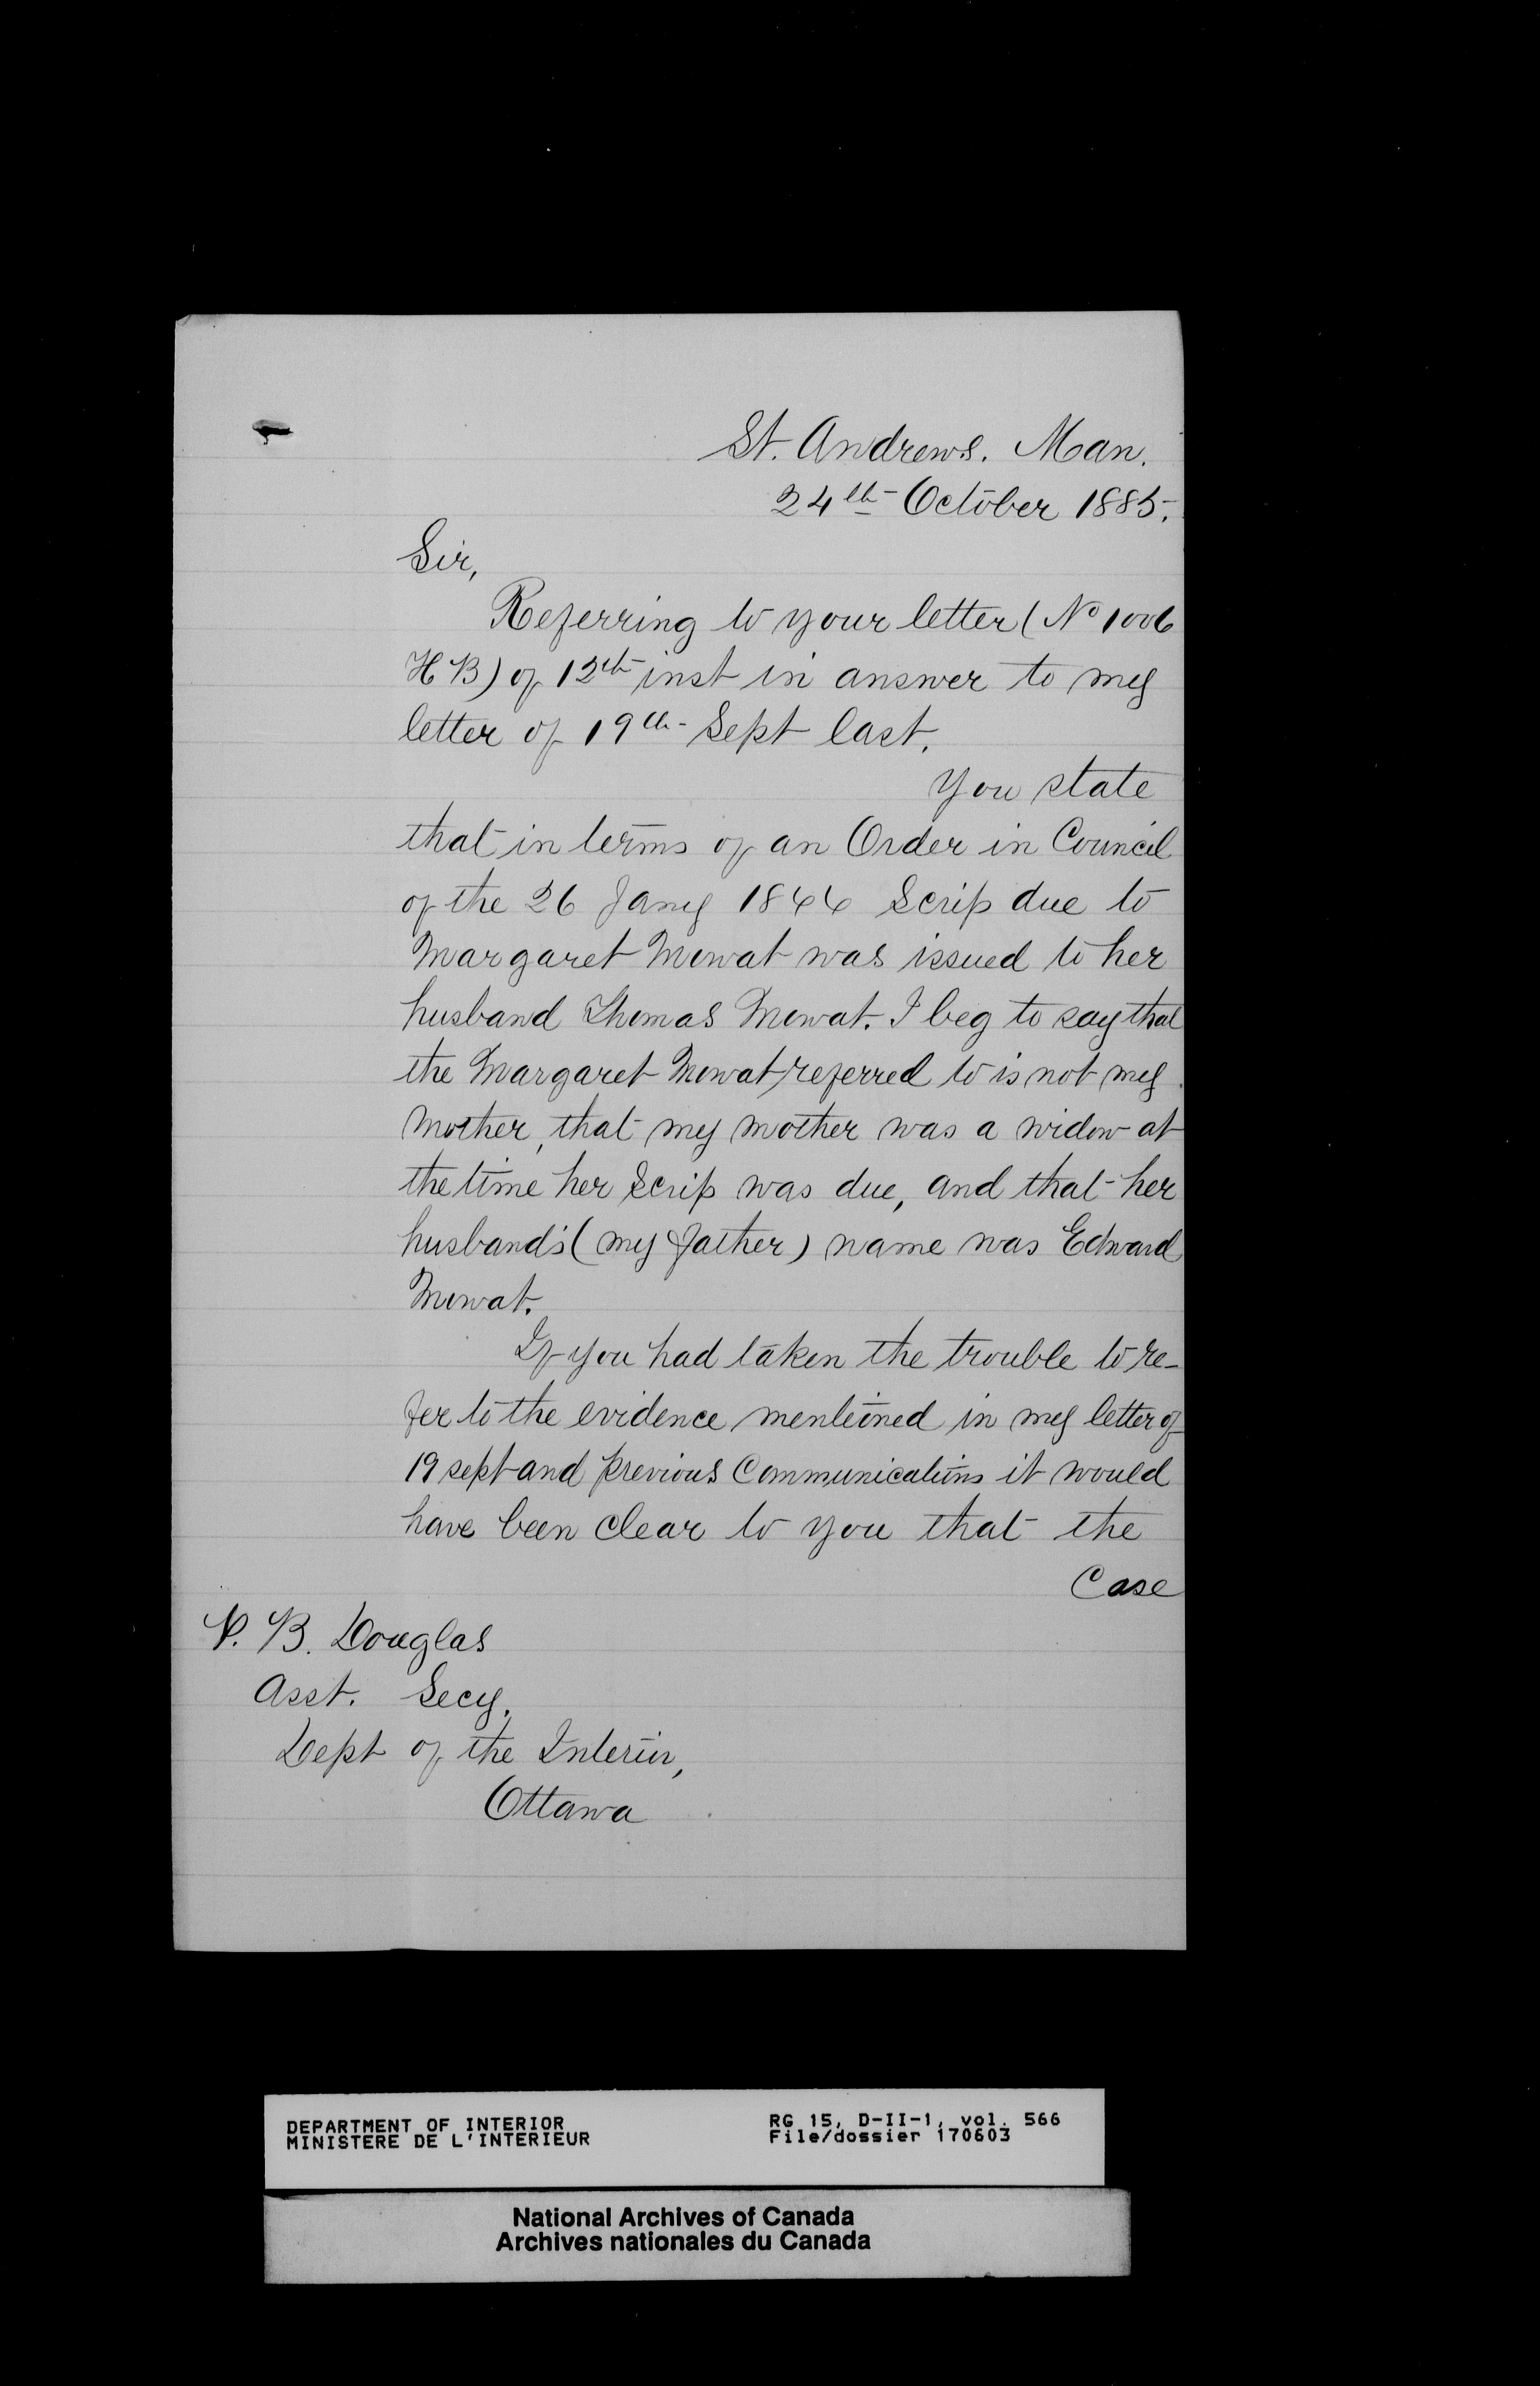 St. Andrews. Man.
24th October 1885.
Sir,
Referring to your letter (No 1006
HB) of 12th inst in answer to my
letter of 19th Sept last.
You state
that in terms of an Order in Council
of the 26 Jany 1844 Scrip due to
Margaret Mowat was issued to her
husband Thomas Mowat. I beg to say that
the Margaret Mowat referred to is not my
Mother, that my mother was a widow at
the time her Scrip was due, and that her
husband's (my father) name was Edward
Mowat.
If you had taken the trouble to re-
fer to the evidence mentioned in my letter of
19 sept and previous Communications it would
have been clear to you that the
Case
P. B. Douglas
Asst. Secy.
Dept of the Interior,
Ottawa
DEPARTMENT OF INTERIOR
MINISTERE DE L'INTERIEUR
RG 15, D-II-1, vol. 566
File/dossier 170603
National Archives of Canada
Archives nationales du Canada